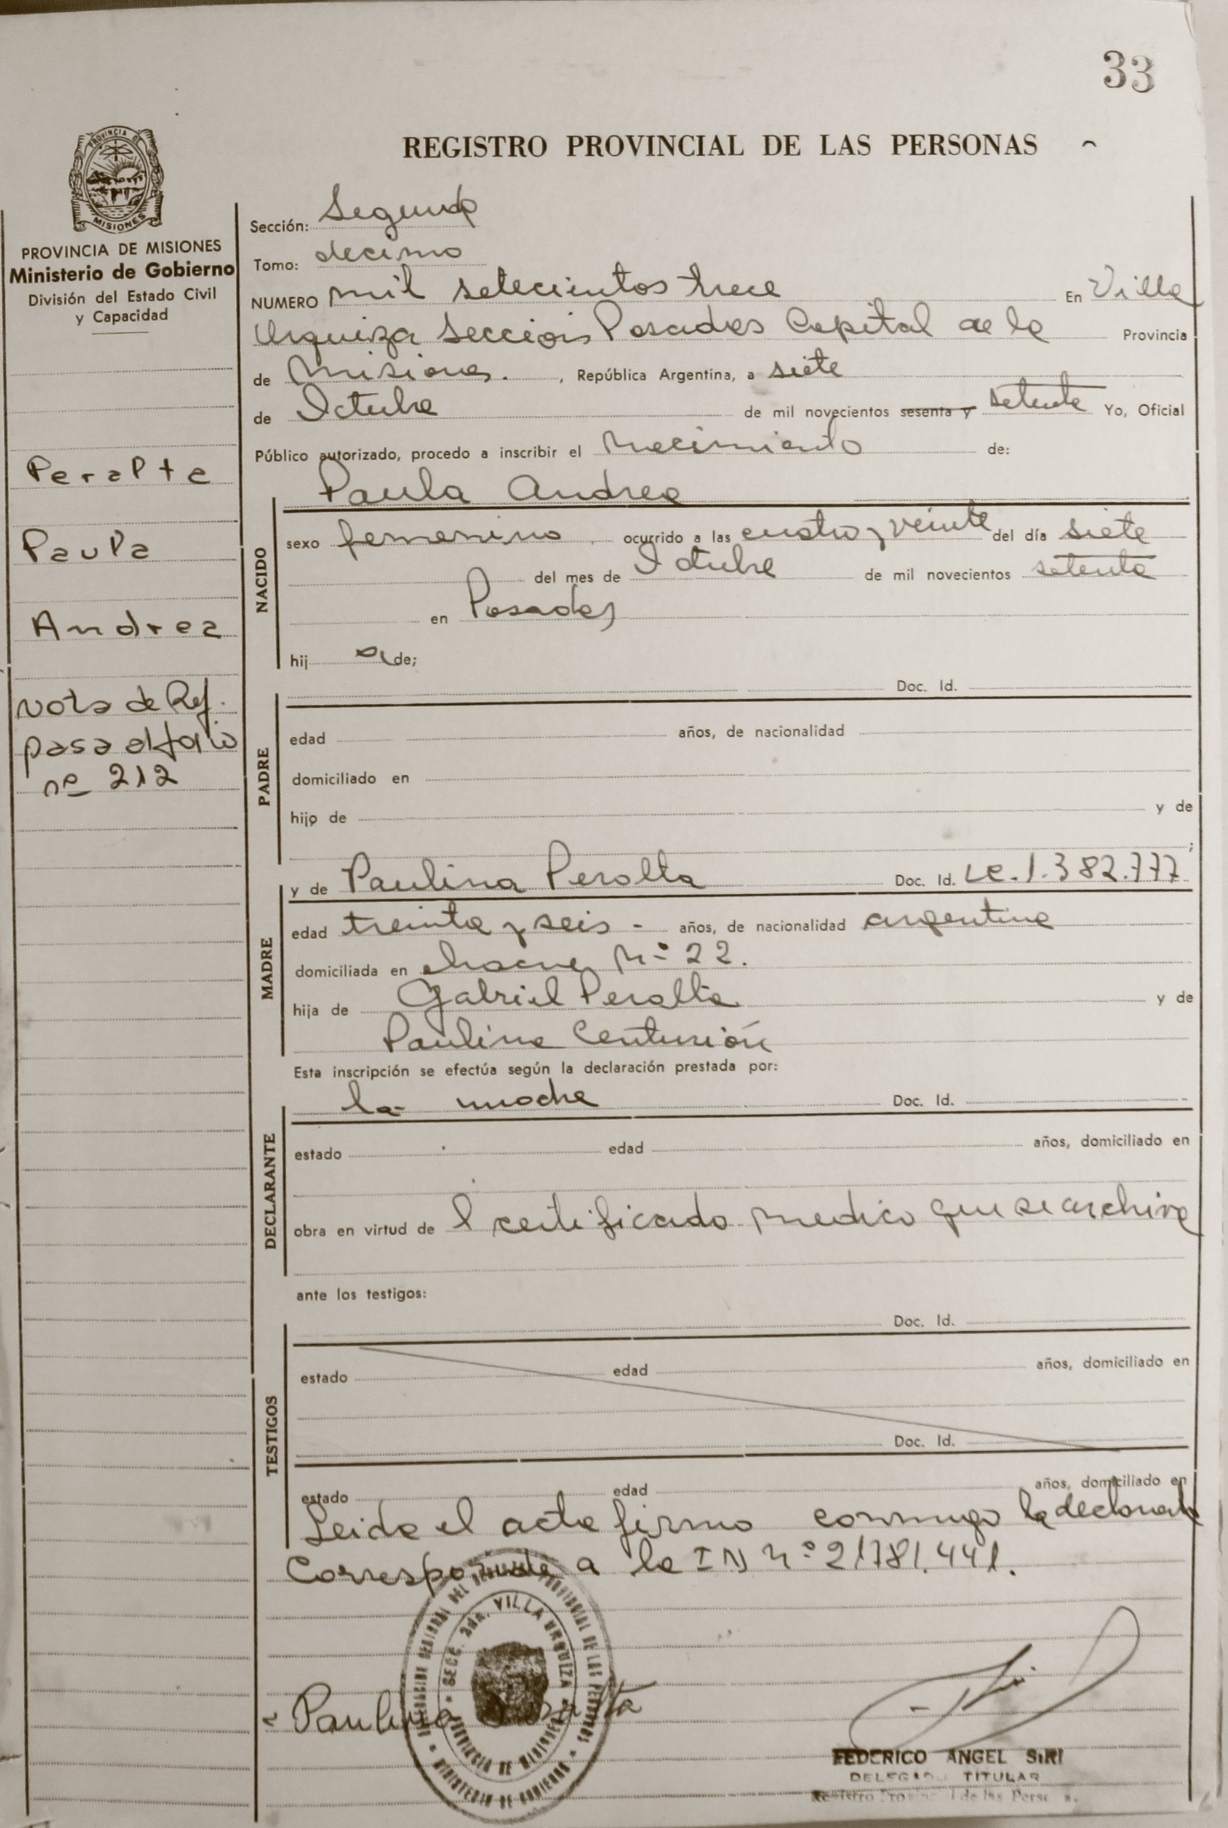 33
PROVINCIA DE
MISIONES
REGISTRO PROVINCIAL DE LAS PERSONAS
PROVINCIA DE MISIONES
Ministerio de Gobierno
División del Estado Civil
y Capacidad
Peralta
Paula
Andrea
Nota de Ref.
pasa al folio
nº 212
Sección: Segunda
Tomo: decimo
NUMERO mil setecientos trece En Villa
Urquiza Sección Posadas Capital de la Provincia
de Misiones. , República Argentina, a siete
de Octubre de mil novecientos sesenta y setenta Yo, Oficial
Público autorizado, procedo a inscribir el nacimiento de:
Paula Andrea
NACIDO
sexo femenino ocurrido a las cuatro y veinte del día siete
del mes de Octubre de mil novecientos setenta
en Posadas
hij a de;
Doc. Id.
PADRE
edad años, de nacionalidad
domiciliado en
hijo de y de
;
y de Paulina Peralta Doc. Id. LC.1.382.777
MADRE
edad treinta y seis - años, de nacionalidad argentina
domiciliada en chacra Nº 22.
hija de Gabriel Peralta y de
Paulina Centurión
Esta inscripción se efectúa según la declaración prestada por:
la madre Doc. Id.
DECLARANTE
estado edad años, domiciliado en
obra en virtud de l certificado medico que se archiva
ante los testigos:
Doc. Id.
TESTIGOS
estado edad años, domiciliado en
Doc. Id.
estado edad años, domiciliado en
Leida el acta firma conmigo la declarante
Corresponde a la IN Nº 21.781.441.
SECC. 2da. VILLA URQUIZA
PROVINCIA DE MISIONES
PROVINCIAL DE LAS PERSONAS
MINISTERIO DE GOBIERNO
Paulina Peralta
FEDERICO ANGEL SIRI
DELEGADO TITULAR
Registro Provincial de las Personas.